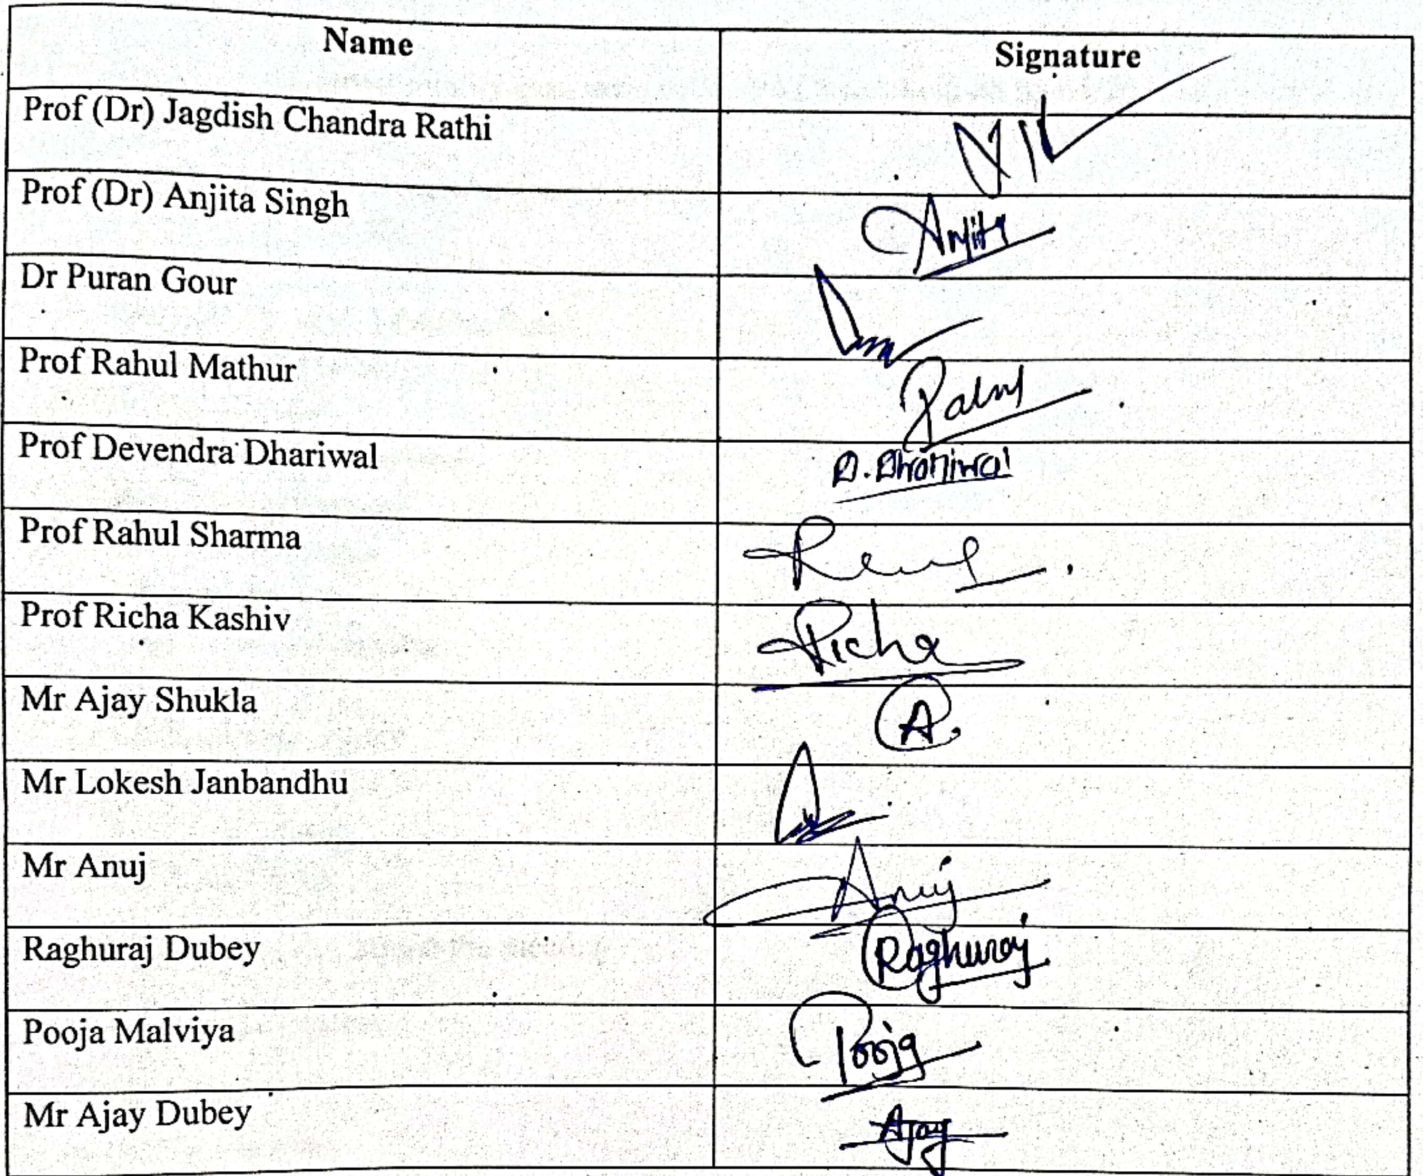 Name Signature
Prof (Dr) Jagdish Chandra Rathi
Prof (Dr) Anjita Singh Anjita
Dr Puran Gour
Prof Rahul Mathur Rahul
Prof Devendra Dhariwal D. Dhariwal
Prof Rahul Sharma
Prof Richa Kashiv Richa
Mr Ajay Shukla A.
Mr Lokesh Janbandhu
Mr Anuj Anuj
Raghuraj Dubey Raghuraj
Pooja Malviya Pooja
Mr Ajay Dubey Ajay